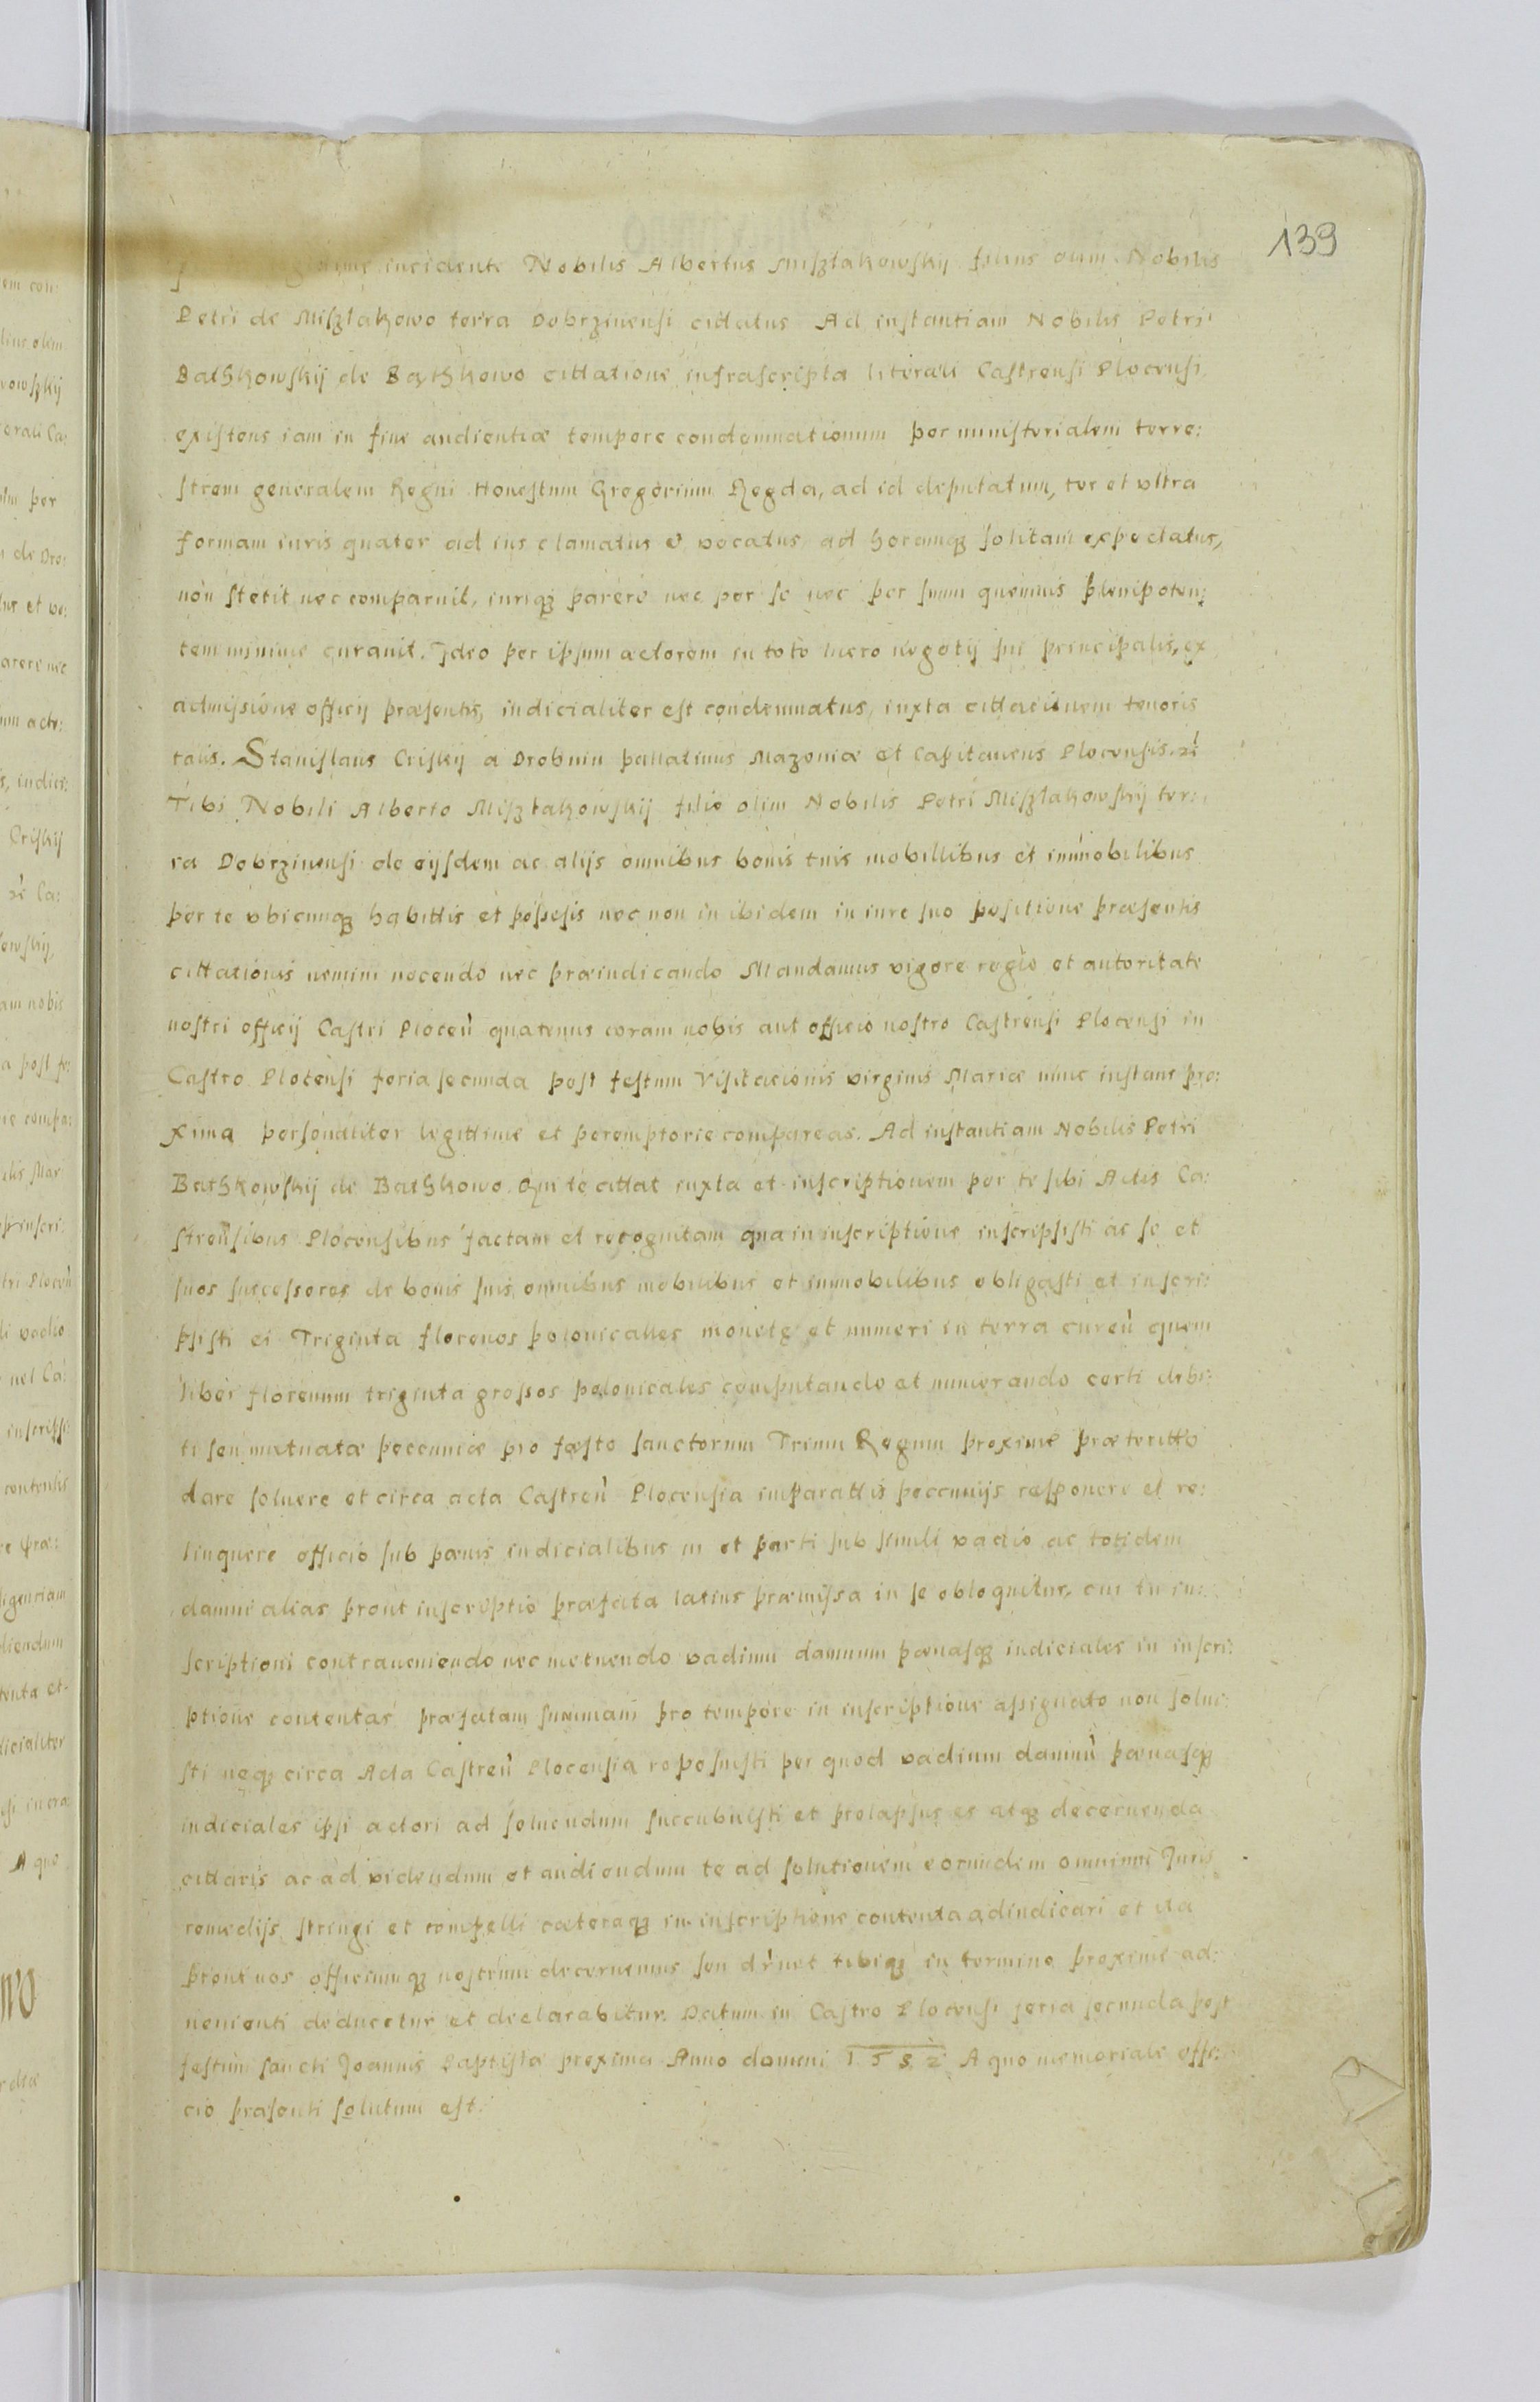 139
incidente Nobilis Albertus Miſzlakowſkij filius olim Nobilis
Petri de Miſzlakowo terra Dobrzinenſi citatus Ad inſtantiam Nobilis Petri
Bathkowſkij de Bathkowo cittatione infraſcripta literali Caſtrenſi Plocenſi
exiſtens iam in fine audientiæ tempore condemnationum per miniſterialem terre:
ſtrem generalem Regni Honeſtum Gregorium Regda, ad id deputatum, ter et vltra
formam iuris quater ad ius clamatus & vocatus ad horamq; ſolitam expectatus,
non ſtetit nec comparuit, iuriq; parere nec per ſe nec per ſuum quemuis plenipoten:
tem minime curauit. Ideo per ipſum actorem in toto lucro negotij ſui principalis, ex
admiſsione officij præſentis, iudicialiter eſt condemnatus, iuxta cittationem tenoris
talis. Staniſlaus Criſkij a Drobnin pallatinus Mazoniæ et Capitaneus Plocenſis. zc
Tibi Nobili Alberto Miſzlakowſkij filio olim Nobilis Petri Miſzlakowſkij ter:
ra Dobrzinenſi de eijſdem ac alijs omnibus bonis tuis mobillibus et immobilibus
per te vbicunq; habittis et poſseſis nec non in ibidem in iure ſuo poſitione præſentis
cittationis nemini nocendo nec præiudicando Mandamus vigore regio et autoritate
noſtri officij Caſtri Plocen quatenus coram nobis aut officio noſtro Caſtrenſi Plocenſi in
Caſtro Plocenſi feria ſecunda poſt feſtum Viſitacionis virginis Mariæ nunc inſtans pro:
xima perſonaliter legittime et peremptorie compareas. Ad inſtantiam Nobilis Petri
Bathkowſkij de Bathkowo Qui te cittat iuxta et inſcriptionem per te ſibi Actis Ca:
ſtrenſibus Plocenſibus factam et recognitam qua in inſcriptione inſcripſiſti ac ſe et
ſuos ſucceſsores de bonis ſuis omnibus mobilibus et immobilibus obligaſti et inſcri:
pſiſti ei Triginta florenos polonicalles monete et numeri in terra curen quem
libet florenum triginta groſsos polonicales computando et numerando certi debi:
ti ſeu mutuatæ peccuniæ pro fæſto ſanctorum Trium Regum proxime præteritto
dare ſoluere et circa acta Caſtren Plocenſia imparattis peccunijs reſponere et re:
linquere officio ſub pænis iudicialibus in et parti ſub ſimili vadio ac totidem
damni alias prout inſcriptio præfata latius præmiſsa in ſe obloquitur, cui tu in:
ſcriptioni contraueniendo nec metuendo vadium damnum pænaſq; iudiciales in inſcri:
ptione contentas præfatam ſummam pro tempore in inſcriptione aſsignato non ſolui:
ſti neq; circa Acta Caſtren Plocenſia repoſuiſti per quod vadium damnu pænaſq;
iudiciales ipſi actori ad ſoluendum ſuccubuiſti et prolapſus es atq; decernenda
cittaris ac ad videndum et audiendum te ad ſolutionem eorumdem omnimi Juris
remedijs ſtringi et compelli cæteraq; in inſcriptione contenta adiudicari et ita
prout nos officiumq; noſtrum decernemus ſeu drnet tibiq; in termino proxime ad:
uenienti deducetur et declarabitur. Datum in Caſtro Plocenſi feria ſecunda poſt
feſtum ſancti Joannis Baptiſta proxima Anno domini 1582 A quo memoriale offi:
cio præſenti ſolutum eſt.